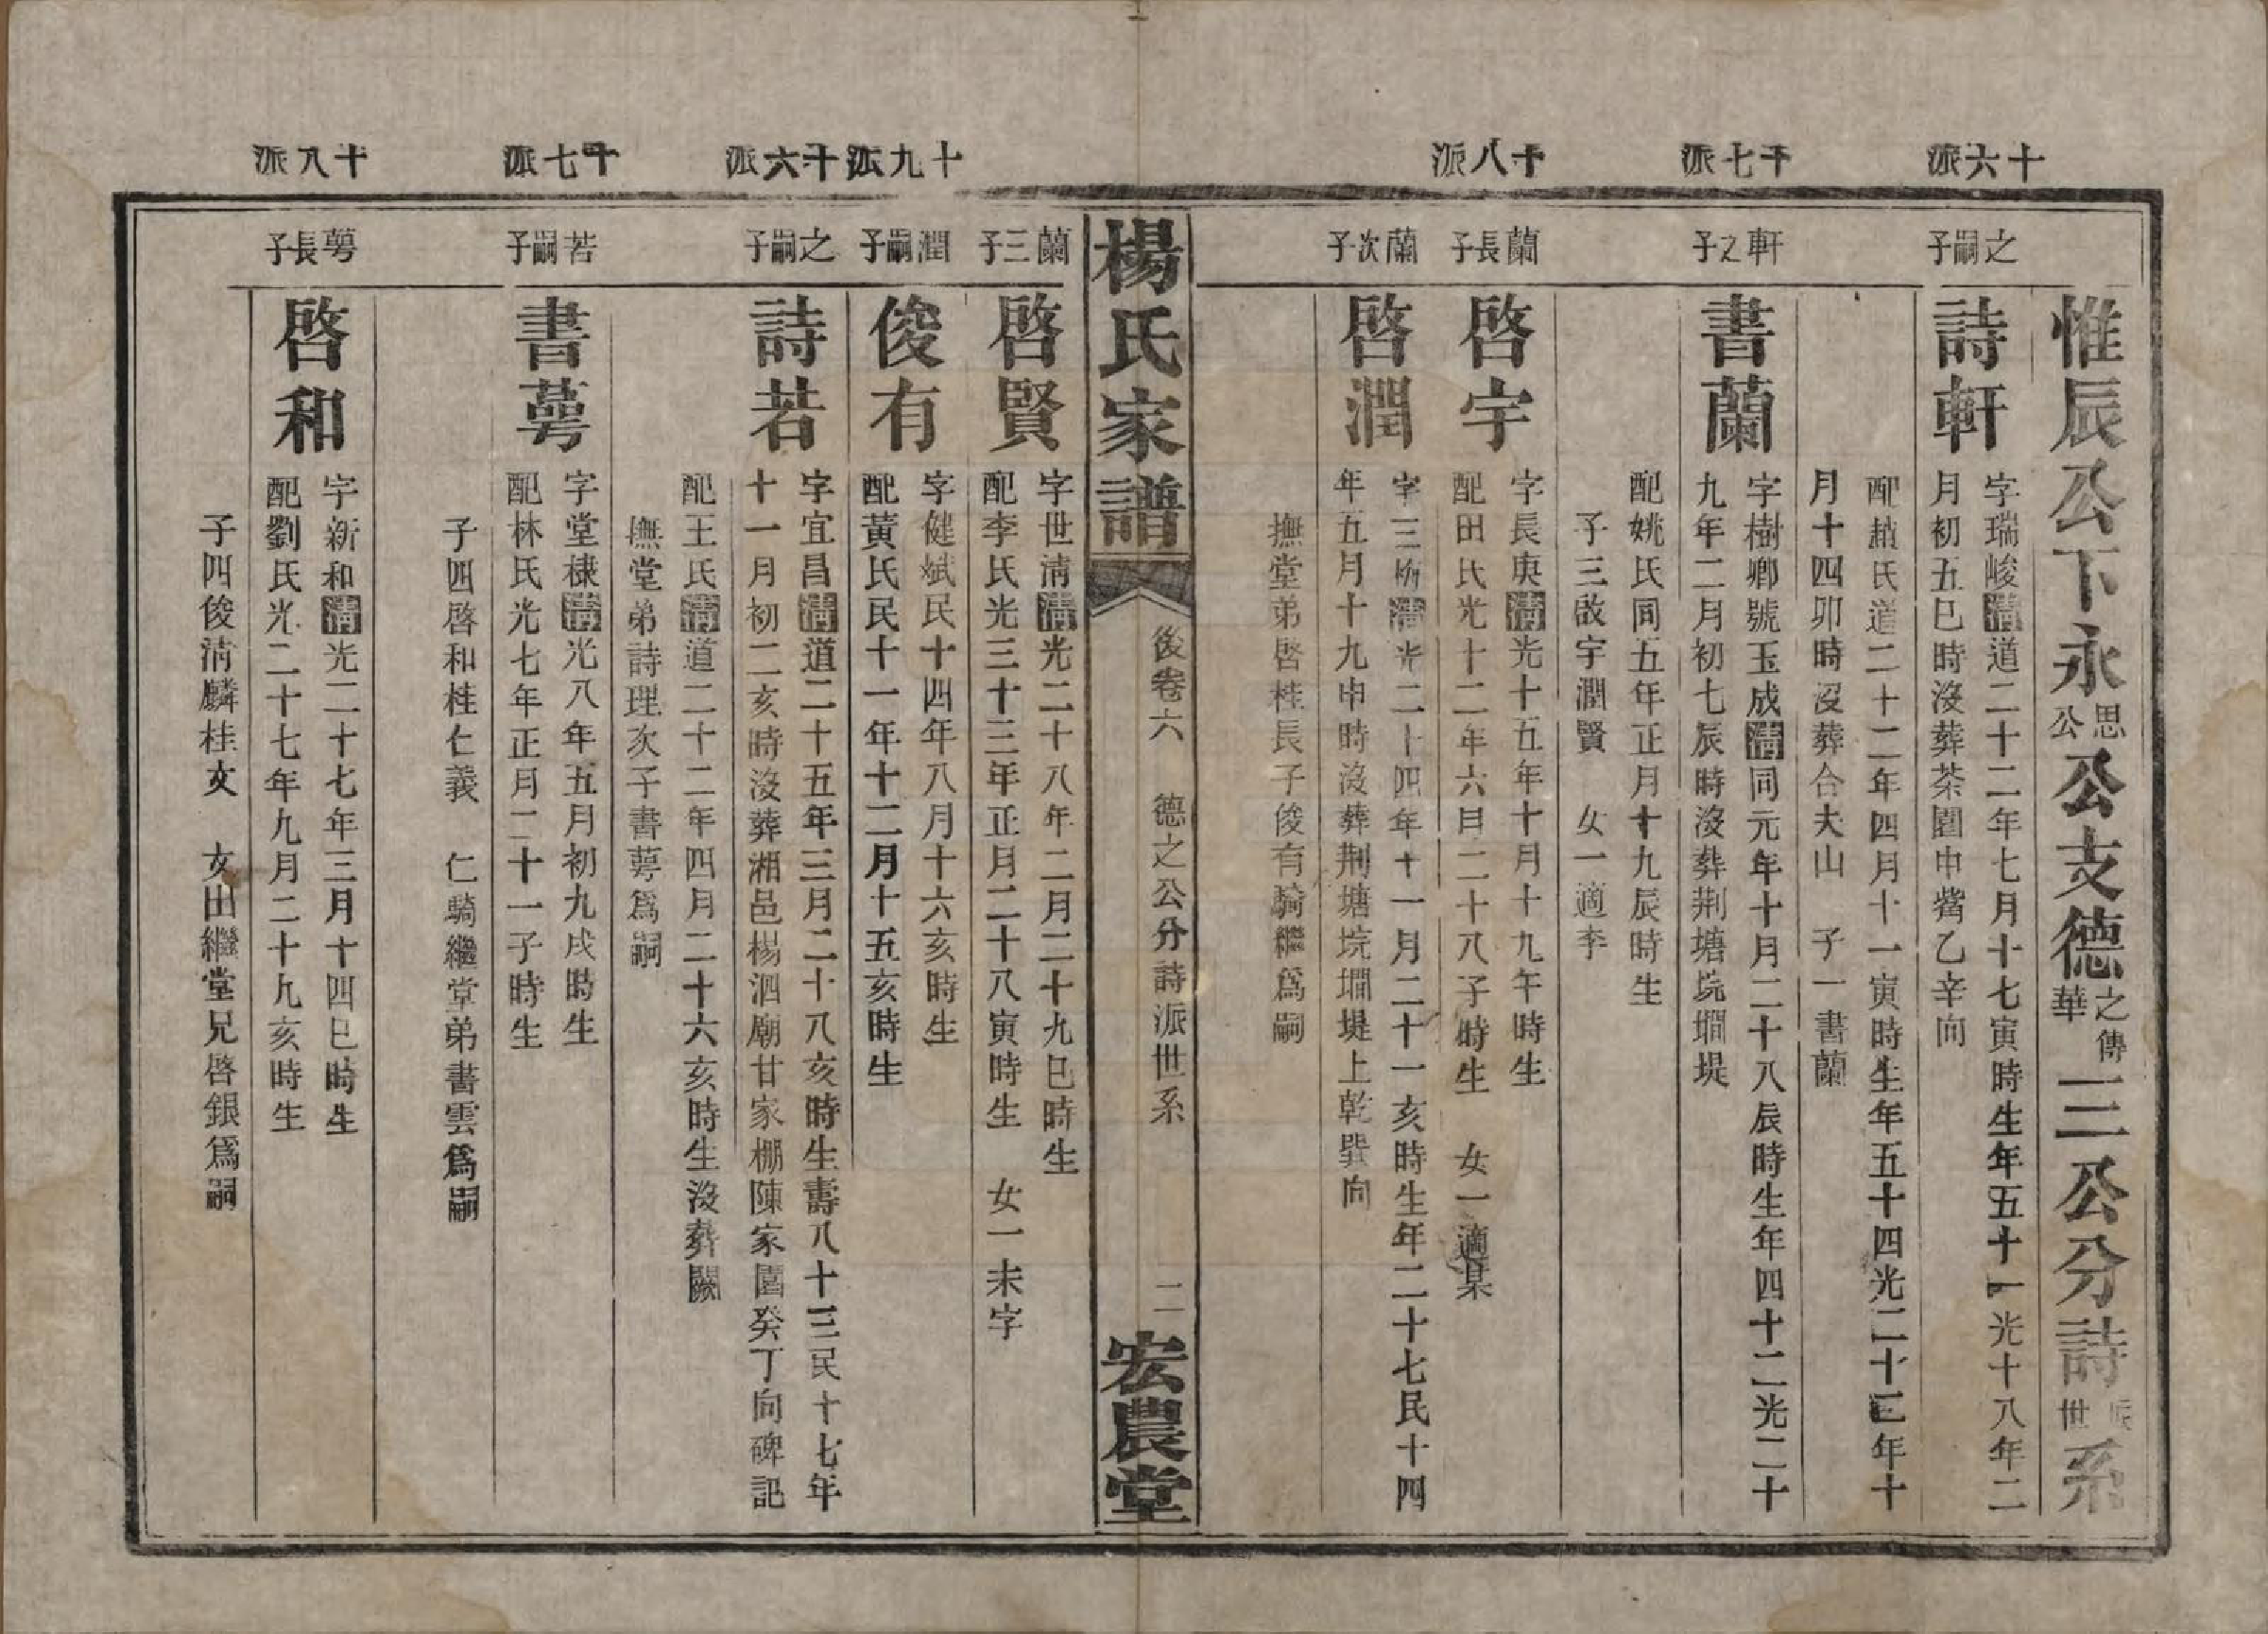 惟辰公下永思公公支德之華傳三公分詩派世系
十六派
之嗣子
詩軒
字瑞峻清道二十二年七月十七寅時生年五十一光十八年二
月初五巳時沒葬茶園申觜乙辛向
配趙氏道二十二年四月十一寅時生年五十四光二十三年十
月十四卯時沒葬合夫山　子一書蘭
十七派
軒之子
書蘭
字樹卿號玉成清同元年十月二十八辰時生年四十二光二十
九年二月初七辰時沒葬荆塘垸墹堤
配姚氏同五年正月十九辰時生
子三啟宇潤賢　女一適李
十八派
蘭長子
啓宇
字長庚清光十五年十月十九午時生
配田氏光十二年六月二十八子時生　女一適某
蘭次子
啓潤
字三清光二十四年十一月二十一亥時生年二十七民十四
年五月十九申時沒葬荆塘垸墹堤上乾巽向
撫堂弟啓桂長子俊有騎繼爲嗣
楊氏家譜
後卷六　德之公分詩派世系
二
宏農堂
蘭三子
啓賢
字世淸清光二十八年二月二十九巳時生
配李氏光三十三年正月二十八寅時生　女一未字
十九派
潤嗣子
俊有
字健斌民十四年八月十六亥時生
配黃氏民十一年十二月十五亥時生
十六派
之嗣子
詩若
字宜昌清道二十五年三月二十八亥時生壽八十三民十七年
十一月初二亥時沒葬湘邑楊泗廟甘家棚陳家園癸丁向碑記
配王氏清道二十二年四月二十六亥時生沒葬闕
撫堂弟詩理次子書萼爲嗣
十七派
若嗣子
書萼
字堂棣清光八年五月初九戌時生
配林氏光七年正月二十一子時生
子四啓和桂仁義　仁騎繼堂弟書雲爲嗣
十八派
萼長子
啓和
字新和清光二十七年三月十四巳時生
配劉氏光二十七年九月二十九亥時生
子四俊淸麟桂文　文出繼堂兄啓銀爲嗣